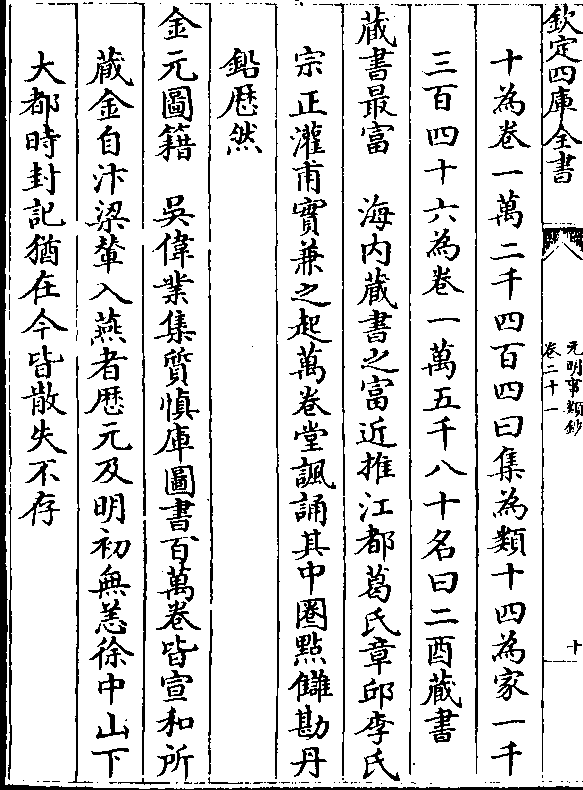 欽定四庫全書
元明事類鈔
卷二十一
十
十為卷一萬二千四百四曰集為類十四為家一千
三百四十六為卷一萬五千八十名曰二酉蔵書
蔵書最富　海内蔵書之富近推江都葛氏章邱李氏
宗正灌甫實兼之起萬卷堂諷誦其中圈點讎勘丹
鉛厯然
金元圖籍　吳偉業集質慎庫圖書百萬卷皆宣和所
蔵金自汴梁輦入燕者厯元及明初無恙徐中山下
大都時封記猶在今皆散失不存